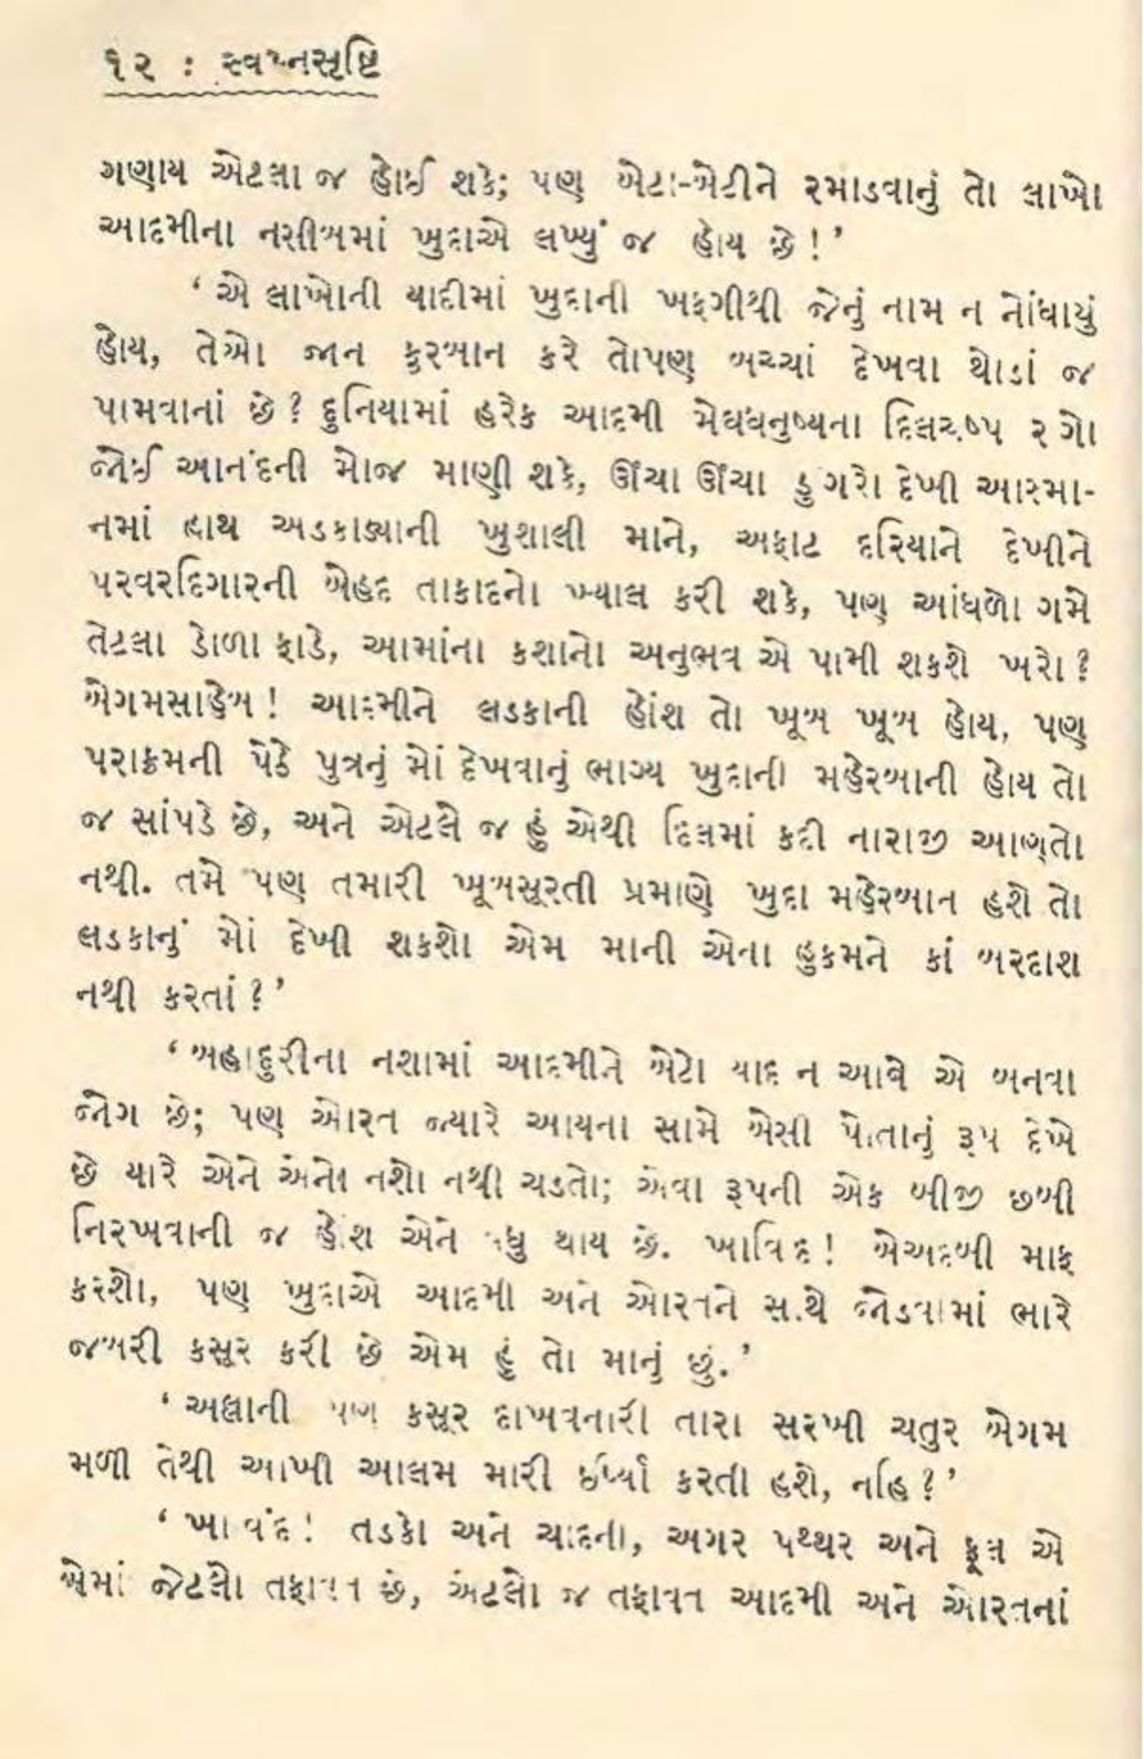 ૧૨ : સ્વપ્નસૃષ્ટિ
ગણાય એટલા જ હોઈ શકે; પણ બેટા-બેટીને રમાડવાનું તો લાખો
આદમીના નસીબમાં ખુદાએ લખ્યું જ હોય છે!’
‘એ લાખોની યાદીમાં ખુદાની ખફગીથી જેનું નામ ન નોંધાયું
હોય, તેઓ જાન કુરબાન કરે તોપણ બચ્ચાં દેખવા થોડાં જ
પામવાનાં છે? દુનિયામાં હરેક આદમી મેઘધનુષ્યના દિલચષ્પ રંગો
જોઈ આનંદની મોજ માણી શકે, ઊંચા ઊંચા ડુંગરો દેખી આસ્મા-
નમાં હાથ અડકાડ્યાની ખુશાલી માને, અફાટ દરિયાને દેખીને
પરવરદિગારની બેહદ તાકાદનો ખ્યાલ કરી શકે, પણ આંધળો ગમે
તેટલા ડોળા ફાડે, આમાંના કશાનો અનુભવ એ પામી શકશે ખરો?
બેગમસાહેબ! આદમીને લડકાની હોંશ તો ખૂબ ખૂબ હોય, પણ
પરાક્રમની પેઠે પુત્રનું મોં દેખવાનું ભાગ્ય ખુદાની મહેરબાની હોય તો
જ સાંપડે છે, અને એટલે જ હું એથી દિલમાં કદી નારાજી આણ્તો
નથી. તમે પણ તમારી ખૂબસૂરતી પ્રમાણે ખુદા મહેરબાન હશે તો
લડકાનું મોં દેખી શકશો એમ માની એના હુકમને કાં બરદાશ
નથી કરતાં?’
‘બહાદુરીના નશામાં આદમીને બેટો યાદ ન આવે એ બનવા
જોગ છે; પણ ઓરત જ્યારે આયના સામે બેસી પોતાનું રૂપ દેખે
છે યારે એને એનો નશો નથી ચડતો; એવા રૂપની એક બીજી છબી
નિરખવાની જ હોંશ એને વધુ થાય છે. ખાવિંદ! બેઅદબી માફ
કરશો, પણ ખુદાએ આદમી અને ઓરતને સાથે જોડવામાં ભારે
જબરી કસૂર કરી છે એમ હું તો માનું છું.’
‘અલ્લાની પણ કસૂર દાખવનારી તારા સરખી ચતુર બેગમ
મળી તેથી આખી આલમ મારી ઈર્ષ્યા કરતી હશે, નહિ?’
‘ખાવંદ! તડકો અને ચાદની, અગર પથ્થર અને ફૂલ એ
બેમાં જેટલો તફાવત છે, એટલો જ તફાવત આદમી અને ઓરતનાં